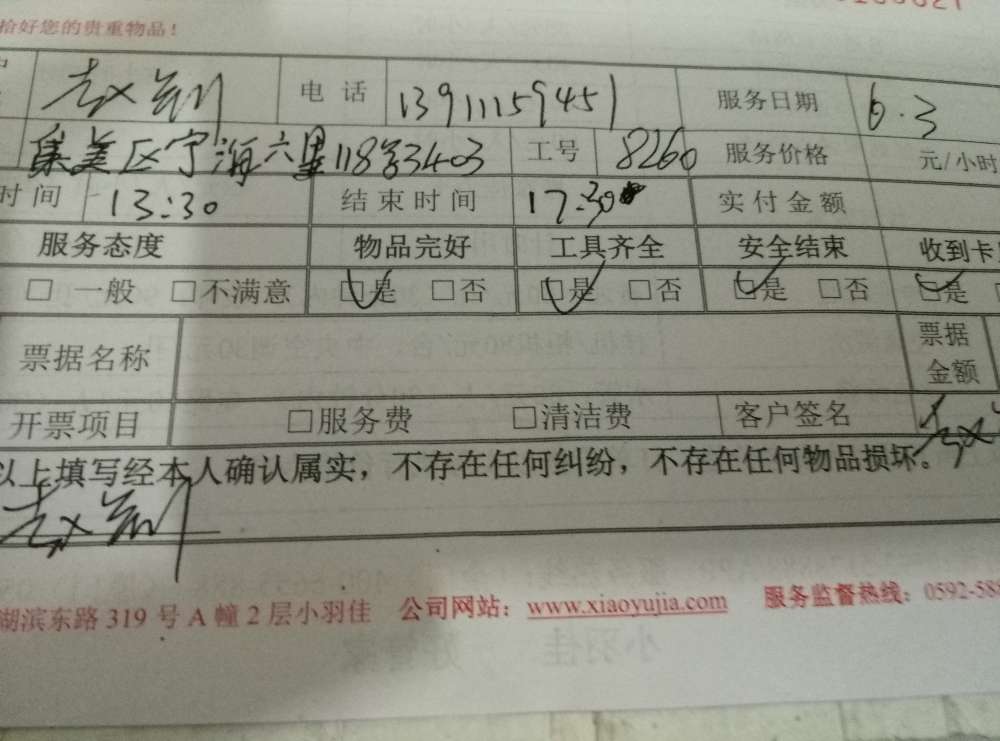 拾好您的贵重物品！
赵 电话 13911159451 服务日期 6.3
集美区宁海六里118号3403 工号 8260 服务价格 元/小时
时间 13:30 结束时间 17:30 实付金额
服务态度 物品完好 工具齐全 安全结束 收到卡
□ 一般 □不满意 □是 □否 □是 □否 □是 □否 □是
票据名称 票据金额
开票项目 □服务费 □清洁费 客户签名 赵
以上填写经本人确认属实，不存在任何纠纷，不存在任何物品损坏。
赵
湖滨东路 319 号 A 幢 2 层小羽佳 公司网站：www.xiaoyujia.com 服务监督热线：0592-58